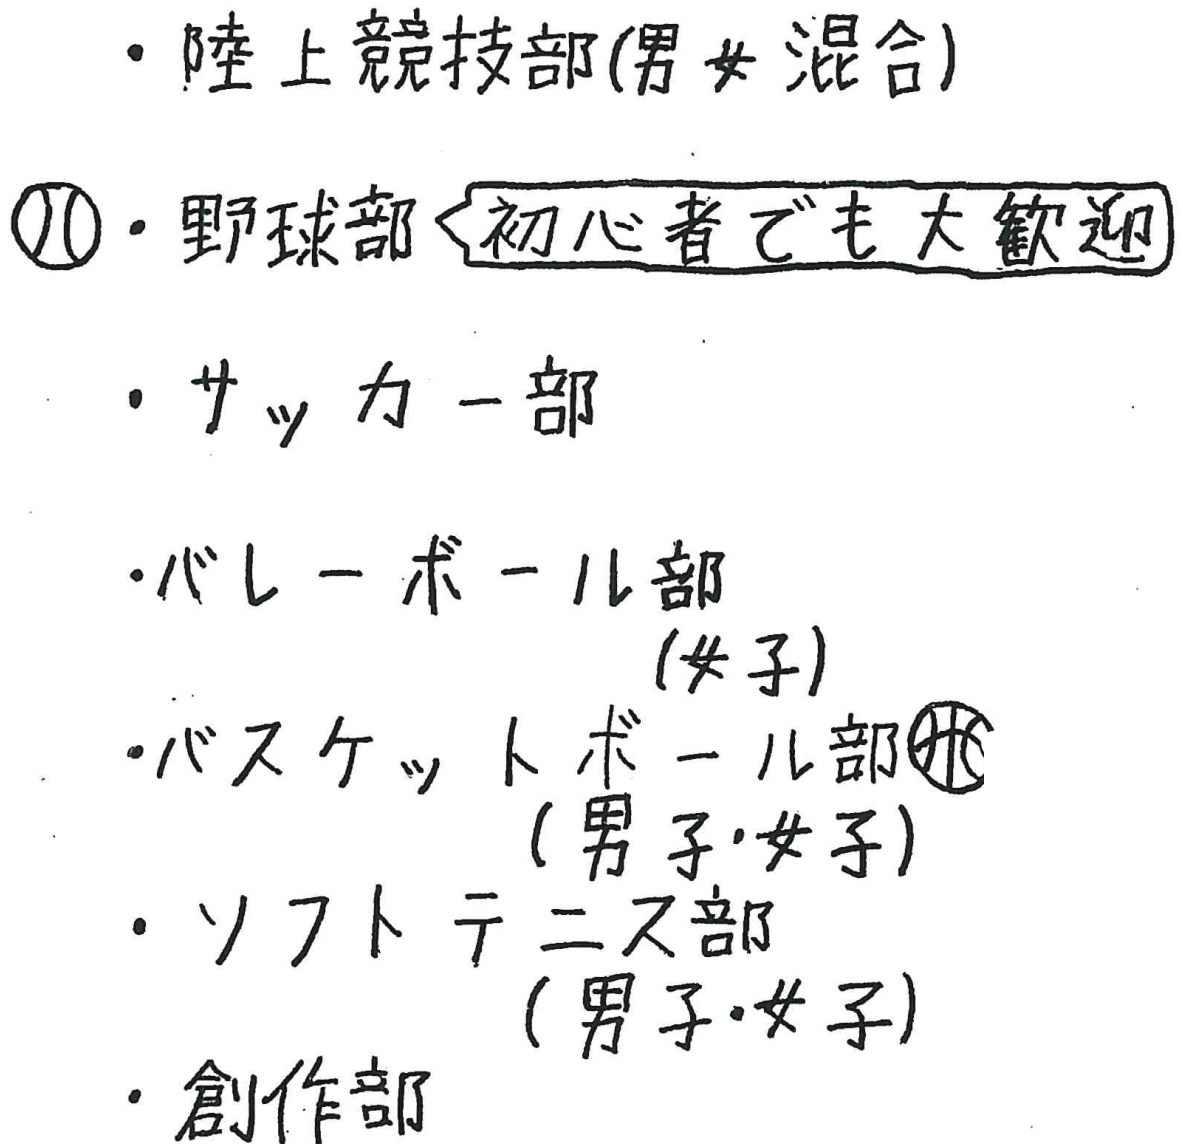 ・陸上競技部(男女混合)
・野球部 初心者でも大歓迎
・サッカー部
・バレーボール部
(女子)
・バスケットボール部
(男子・女子)
・ソフトテニス部
(男子・女子)
・創作部